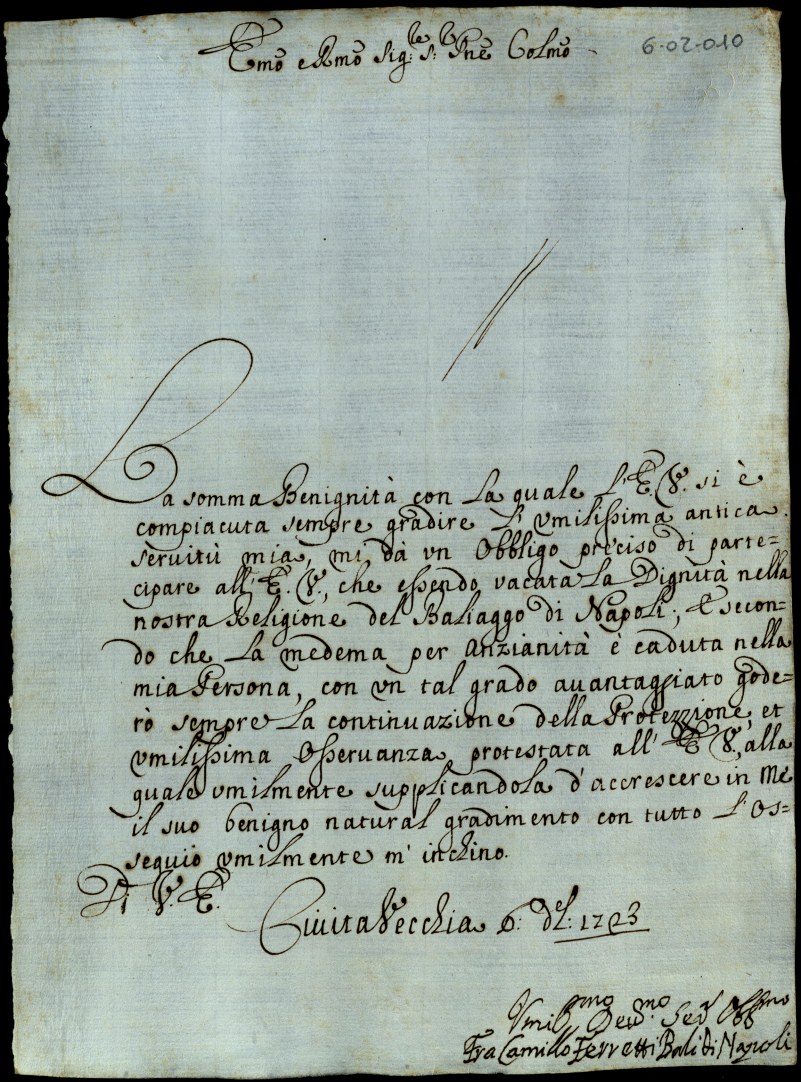 Emo e Rmo Sig:re s:r Pne Colmo
6-02-010
La somma Benignità con La quale L'E.V. si è
compiacuta sempre gradire L'vmilissima antica
seruitù mia, mi dà vn Obbligo preciso di parte=
cipare all'E.V., che essendo vacata La Dignità nella
nostra Religione del Baliaggo di Napoli, E secon=
do che La medema per Anzianità è caduta nella
mia Persona, con vn tal grado auantaggiato gode=
rò sempre La continuazione della Protezzione, et
vmilissima Osseruanza protestata all'E.V., alla
quale vmilmente supplicandola d'accrescere in me
il suo benigno natural gradimento con tutto L'Os=
sequio vmilmente m'inchino.
Di V.E.
CiuitaVecchia 6: del: 1723
Vmilmo Deuo.mo Ser Obbmo
Fra Camillo Ferretti Balì di Napoli